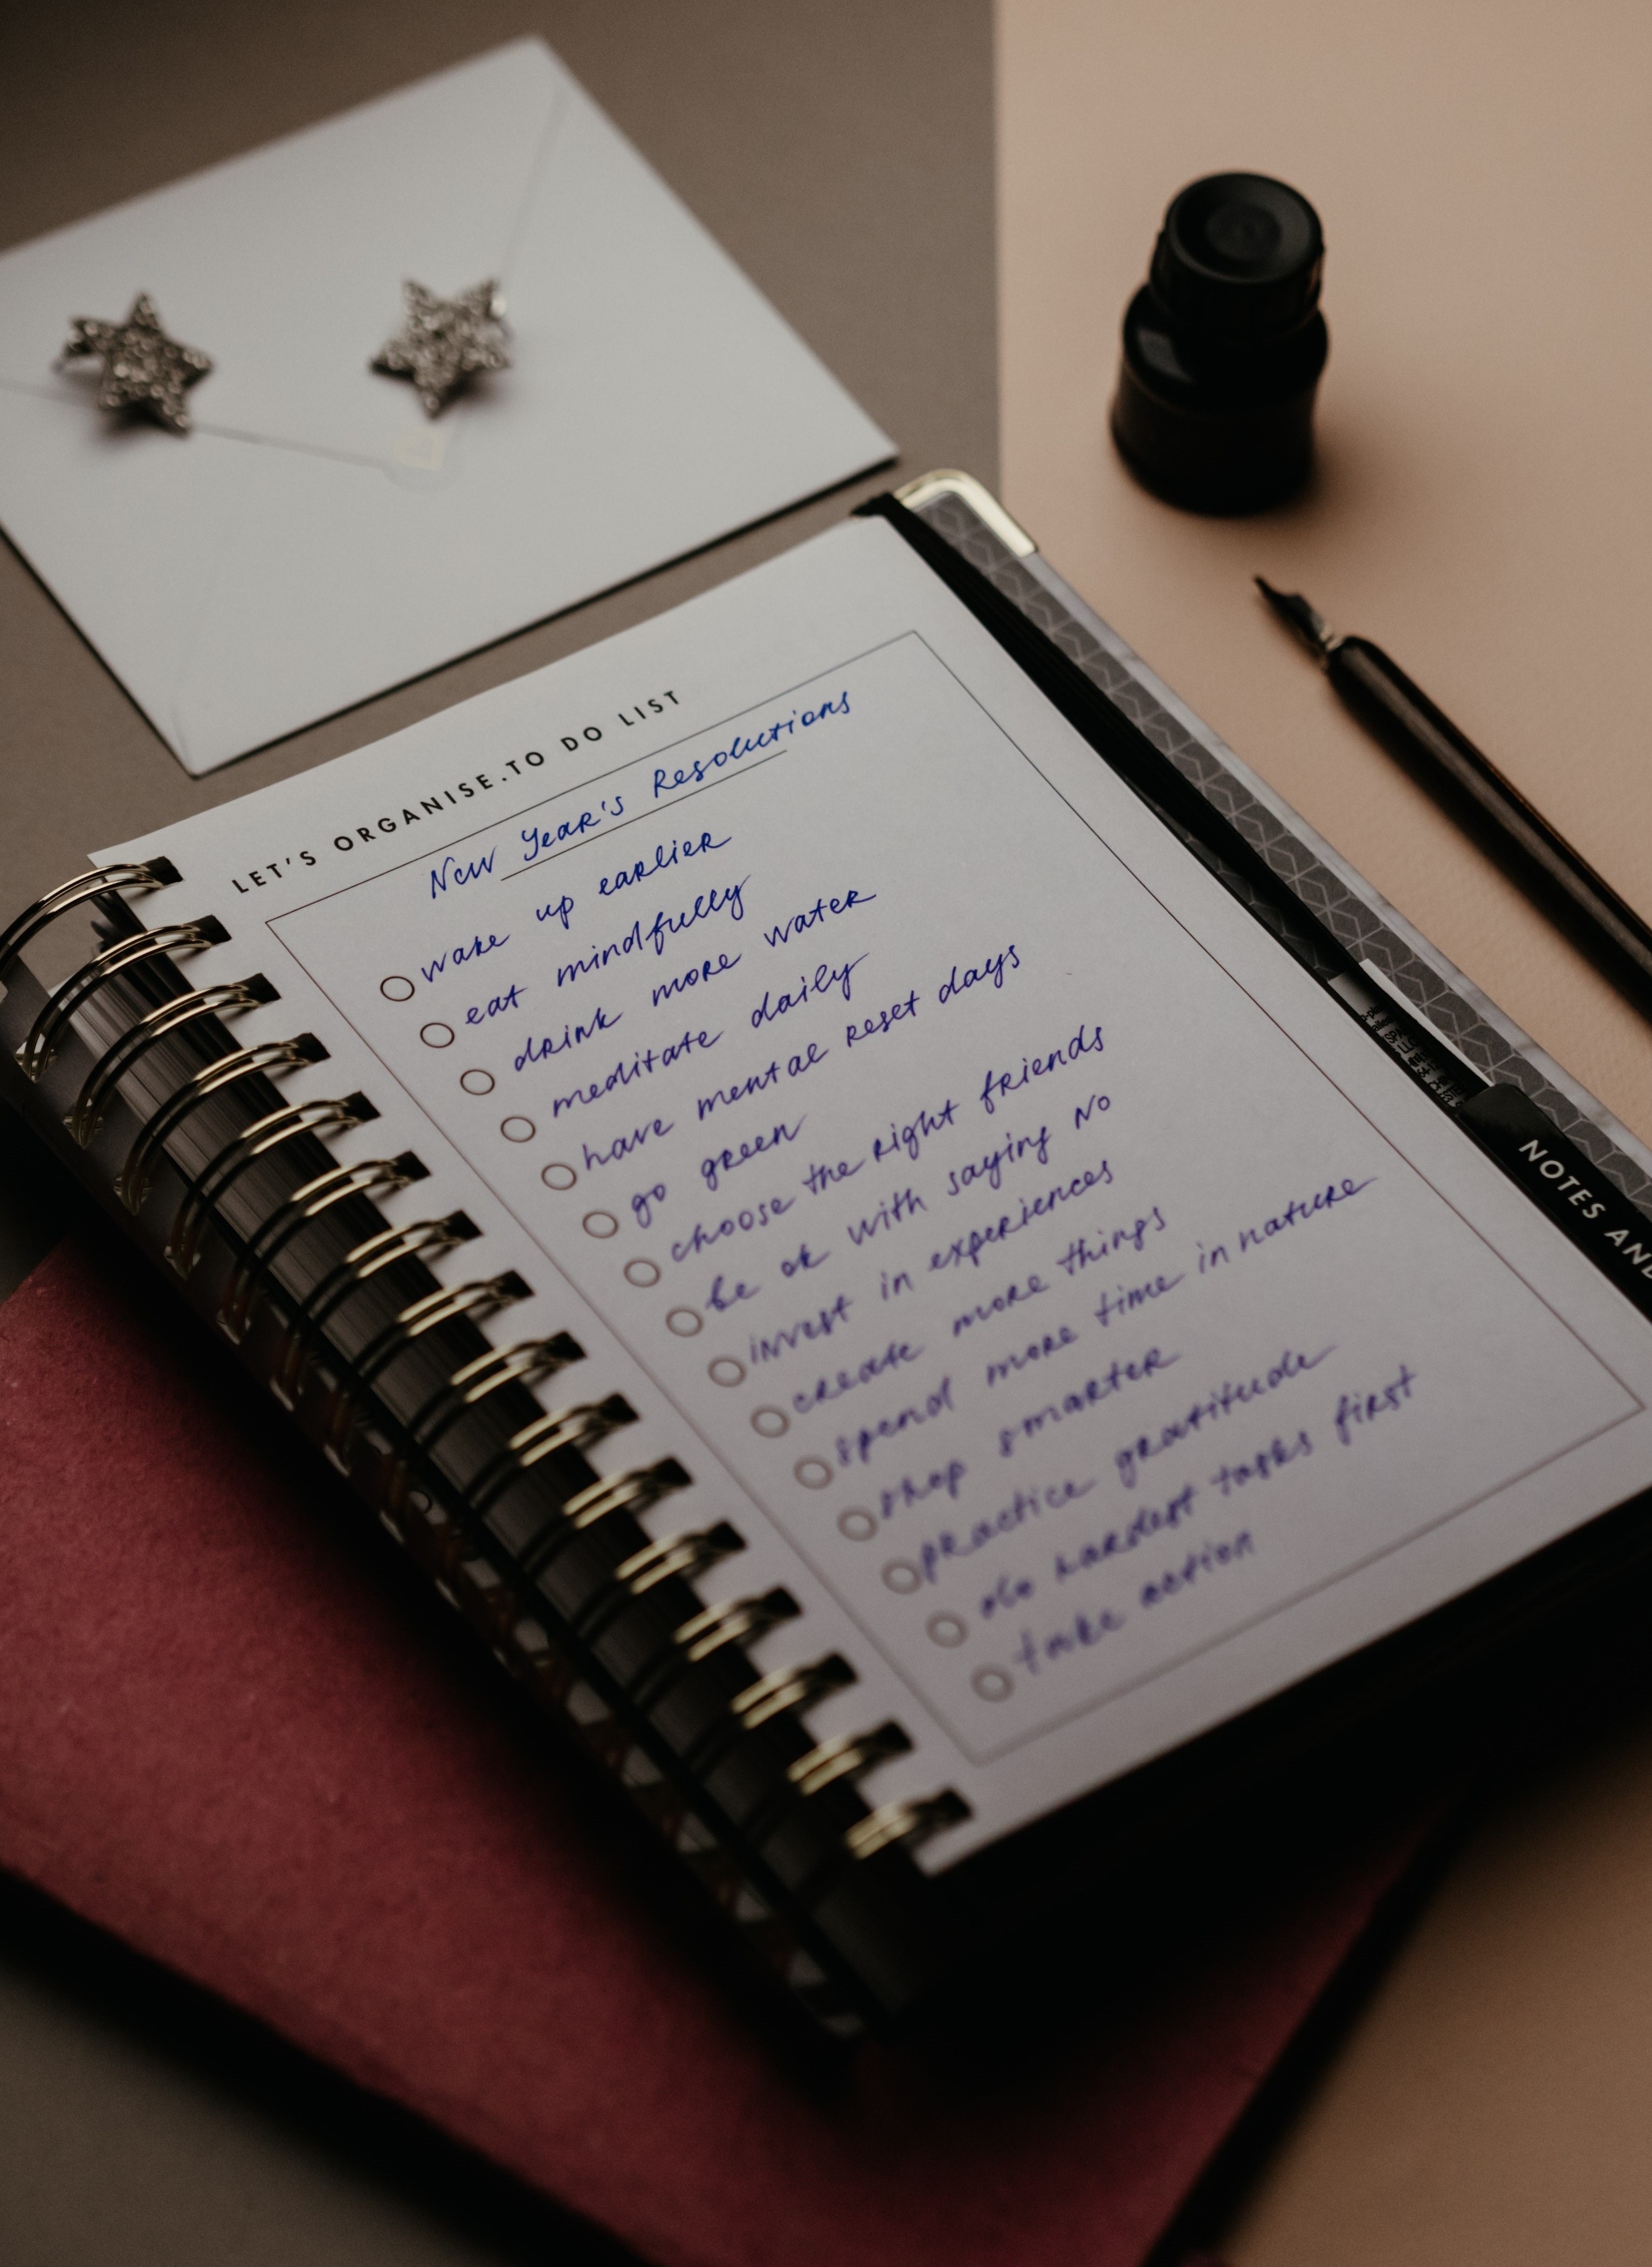 LET'S ORGANISE.TO DO LIST
New Year's Resolutions
wake up earlier
eat mindfully
drink more water
meditate daily
have mental reset days
go green
choose the right friends
be ok with saying NO
invest in experiences
create more things
spend more time in nature
shop smarter
practice gratitude
do hardest tasks first
take action
NOTES AND